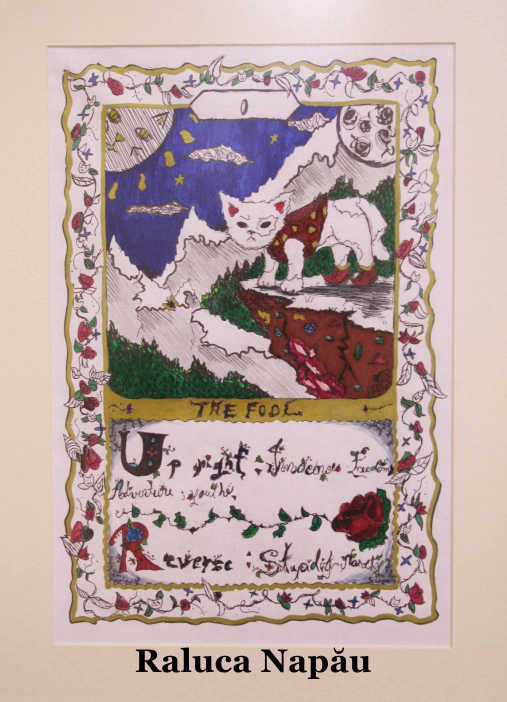 0
THE FOOL
Up right : Inocence Freedom
Adventure ; youth,
Reverse : Stupidity
Raluca Napău